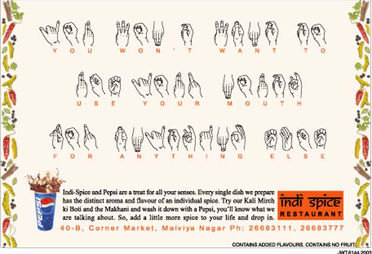 YOU WON'T WANT TO
USE YOUR MOUTH
FOR ANYTHING ELSE
Indi-Spice and Pepsi are a treat for all your senses. Every single dish we prepare
has the distinct aroma and flavour of an individual spice. Try our Kali Mirch
ki Boti and the Makhani and wash it down with a Pepsi, you'll know what we
are talking about. So, add a little more spice to your life and drop in.
PEPSI
indi spice
RESTAURANT
40-B, Corner Market, Malviya Nagar Ph: 26683111, 26683777
CONTAINS ADDED FLAVOURS. CONTAINS NO FRUIT.
JWT.6144.2003